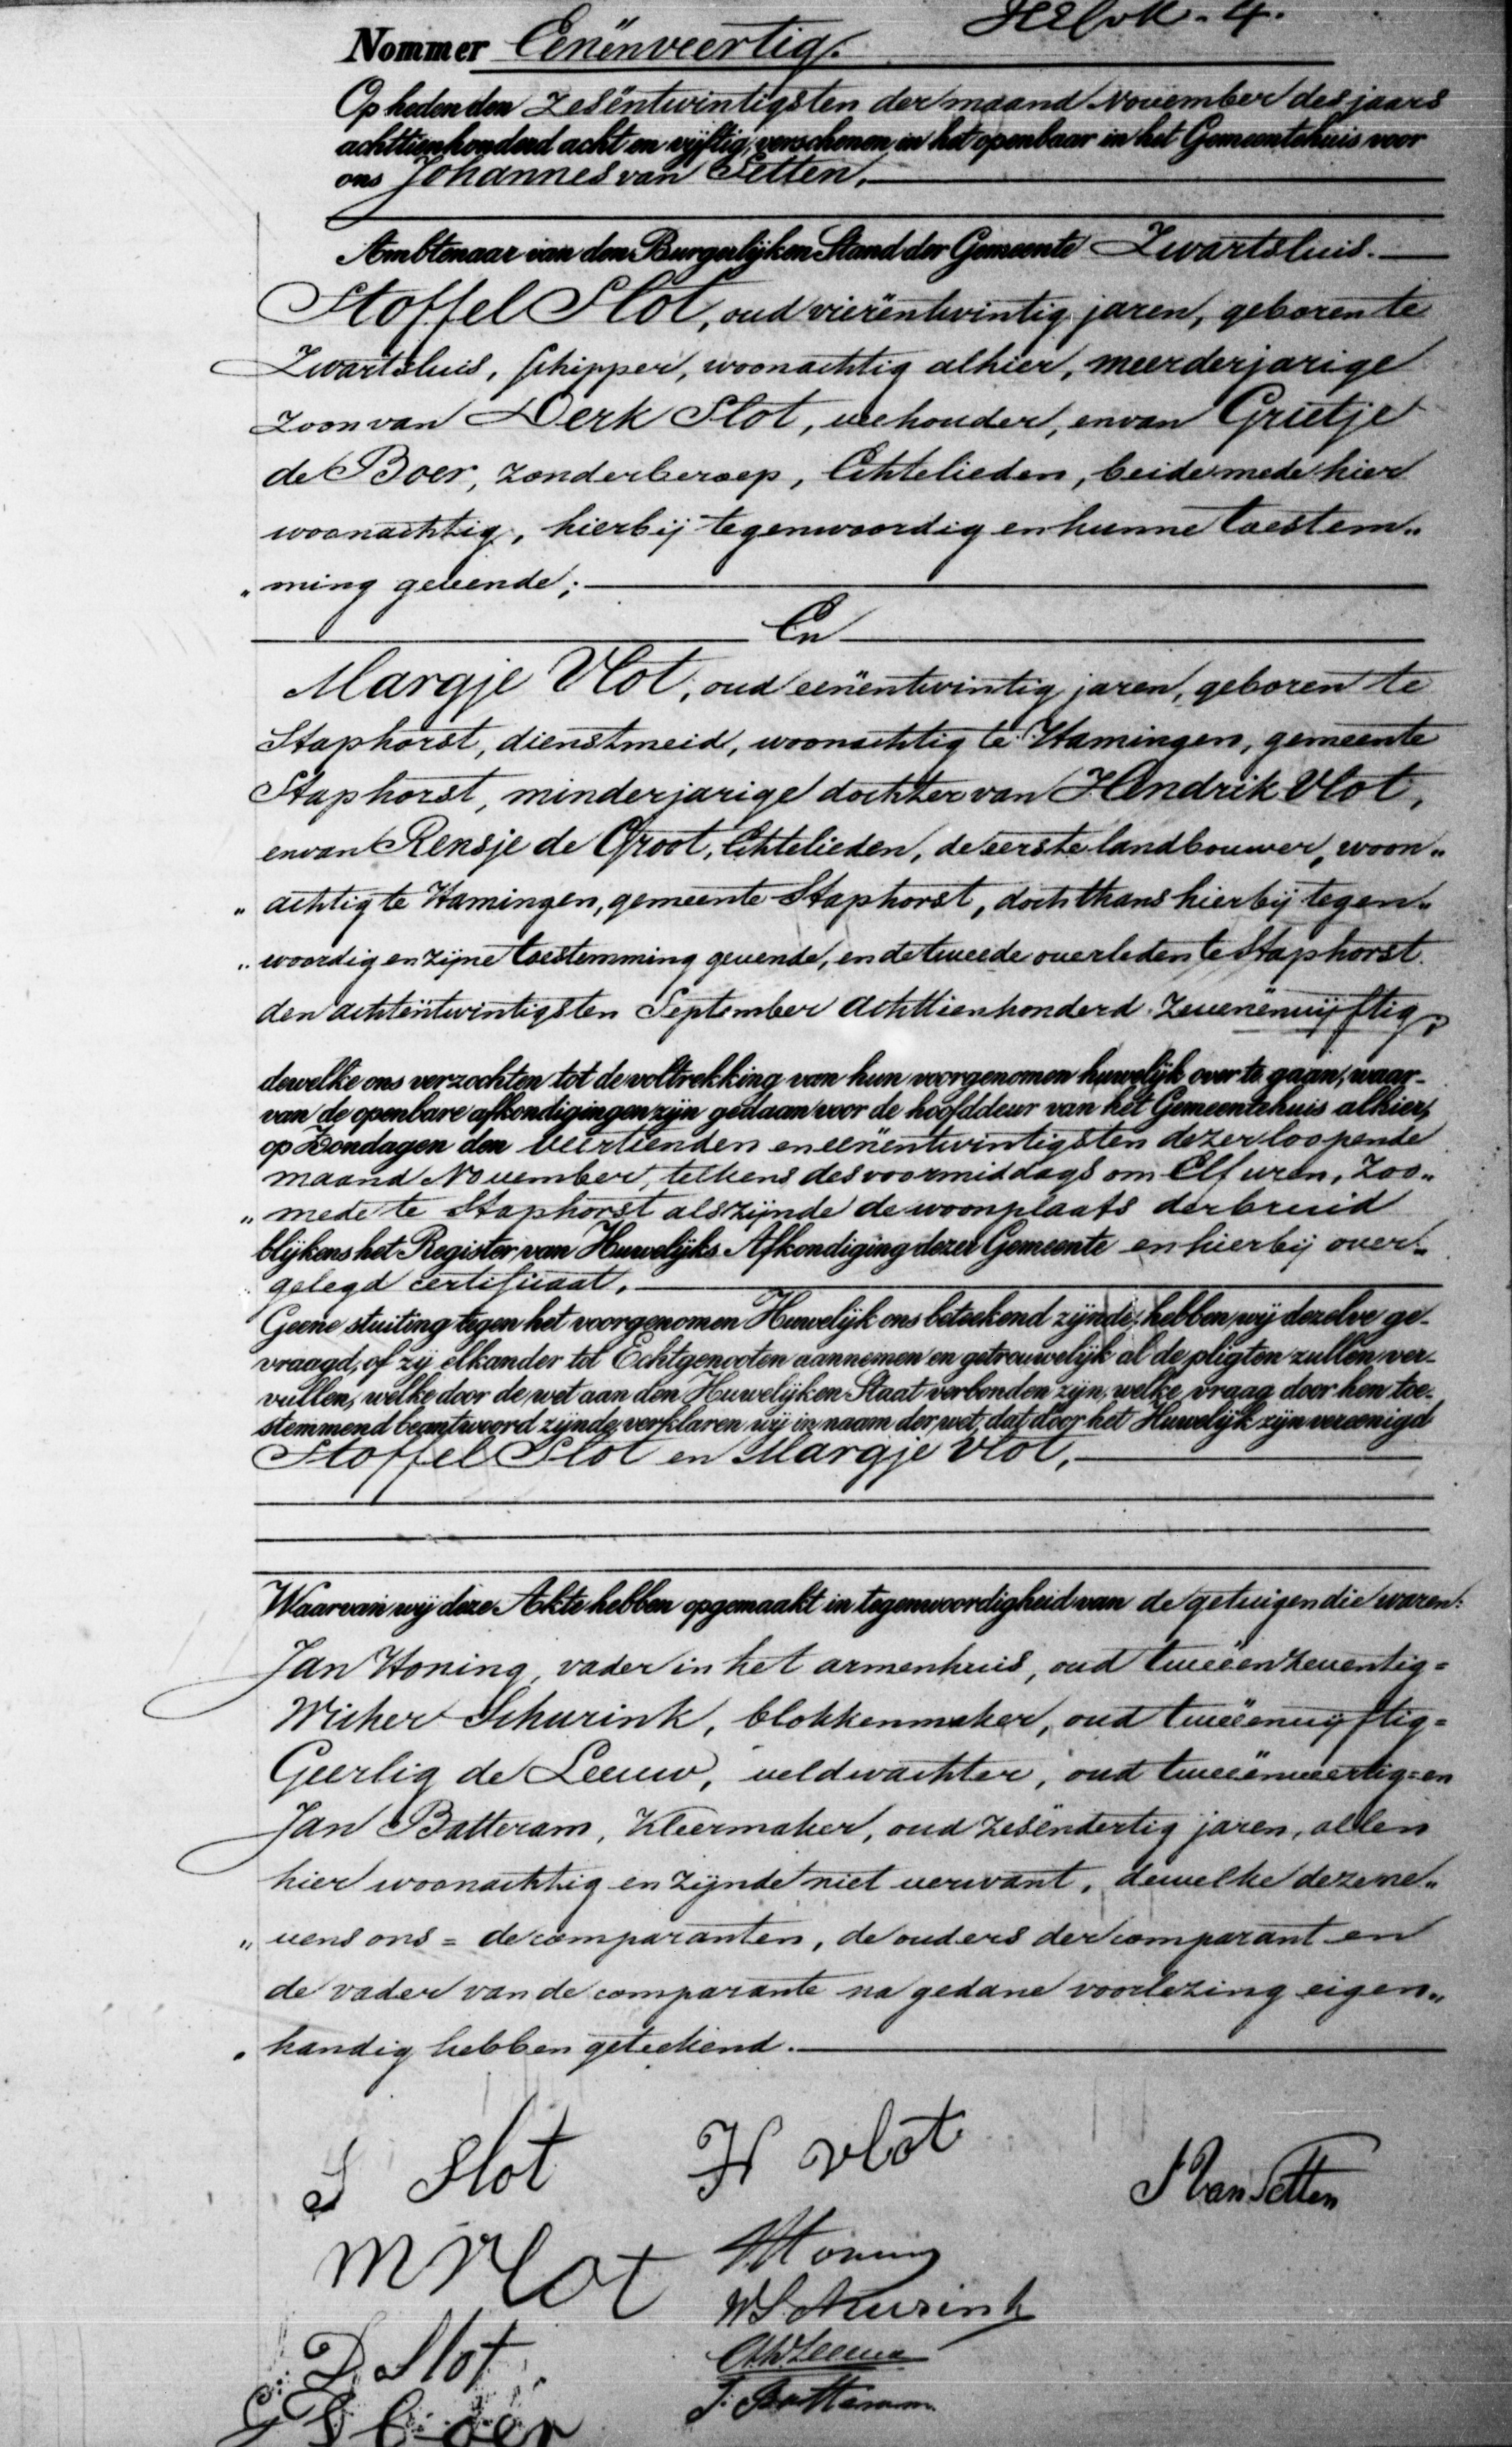 Nommer Eenënveertig.
Op heden den Zesëntwintigsten der maand November des jaars
achttienhonderd acht en vijftig, verschenen in het openbaar in het Gemeentehuis voor
ons Johannes van Setten,
Ambtenaar van den Burgerlijken Stand der Gemeente Zwartsluis.
Stoffel Slot, oud vierëntwintig jaren, geboren te
Zwartsluis, schipper, woonachtig alhier, meerderjarige
zoon van Derk Slot, veehouder, en van Grietje
de Boer, zonder beroep, Echtelieden, beide mede hier
woonachtig, hierbij tegenwoordig en hunne toestem„
„ming gevende;
En
Margje Vlot, oud eenëntwintig jaren, geboren te
Staphorst, dienstmeid, woonachtig te Hamingen, gemeente
Staphorst, minderjarige dochter van Hendrik Vlot,
en van Rensje de Groot, Echtelieden, de eerste landbouwer, woon„
„achtig te Hamingen, gemeente Staphorst, doch thans hierbij tegen„
„woordig en zijne toestemming gevende, en de tweede overleden te Staphorst
den achtëntwintigsten September achttienhonderd zevenënvijftig,
dewelke ons verzochten tot de voltrekking van hun voorgenomen huwelijk over te gaan, waar-
van de openbare afkondigingen zijn gedaan voor de hoofddeur van het Gemeentehuis alhier,
op Zondagen den veertienden en eenëntwintigsten dezer loopende
maand November, telkens des voormiddags om Elf uren, zoo„
„mede te Staphorst als zijnde de woonplaats der bruid
blijkens het Register van Huwelijks Afkondiging dezer Gemeente en hierbij over„
„gelegd certificaat.
Geene stuiting tegen het voorgenomen Huwelijk ons beteekend zijnde, hebben wij dezelve ge-
vraagd, of zij elkander tot Echtgenooten aannemen en getrouwelijk al de pligten zullen ver-
vullen, welke door de wet aan den Huwelijken Staat verbonden zijn, welke vraag door hen toe-
stemmend beantwoord zijnde, verklaren wij in naam der wet, dat door het Huwelijk zijn vereenigd
Stoffel Slot en Margje Vlot,
Waarvan wij deze Akte hebben opgemaakt in tegenwoordigheid van de getuigen die waren:
Jan Honing, vader in het armenhuis, oud tweeënzeventig=
Wicher Schurink, blokkenmaker, oud tweeënvijftig=
Geerlig de Leeuw, veldwachter, oud tweeënveertig= en
Jan Batteram, Kleermaker, oud zesëndertig jaren, allen
hier woonachtig en zijnde niet verwant, dewelke dezene„
„vens ons = de comparanten, de ouders der comparant en
de vader van de comparante na gedane voorlezing eigen„
„handig hebben geteekend.
S Slot H vlot
J van Setten
M Vlot Honing
W Schurink
D. Slot
de Leeuw
G d boer J. Batteram